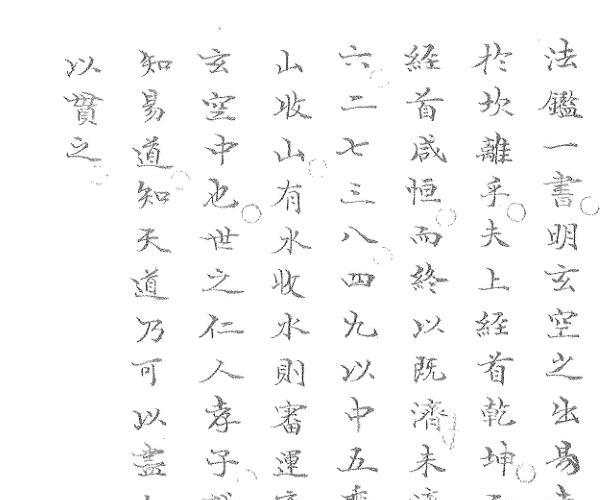 法鑑一書明玄空之出易
於坎離乎夫上經首乾坤
經首咸恒而終以既濟未
六二七三八四九以中五
山收山有水收水則審運
玄空中也世之仁人孝子
知易道知天道乃可以盡
以貫之